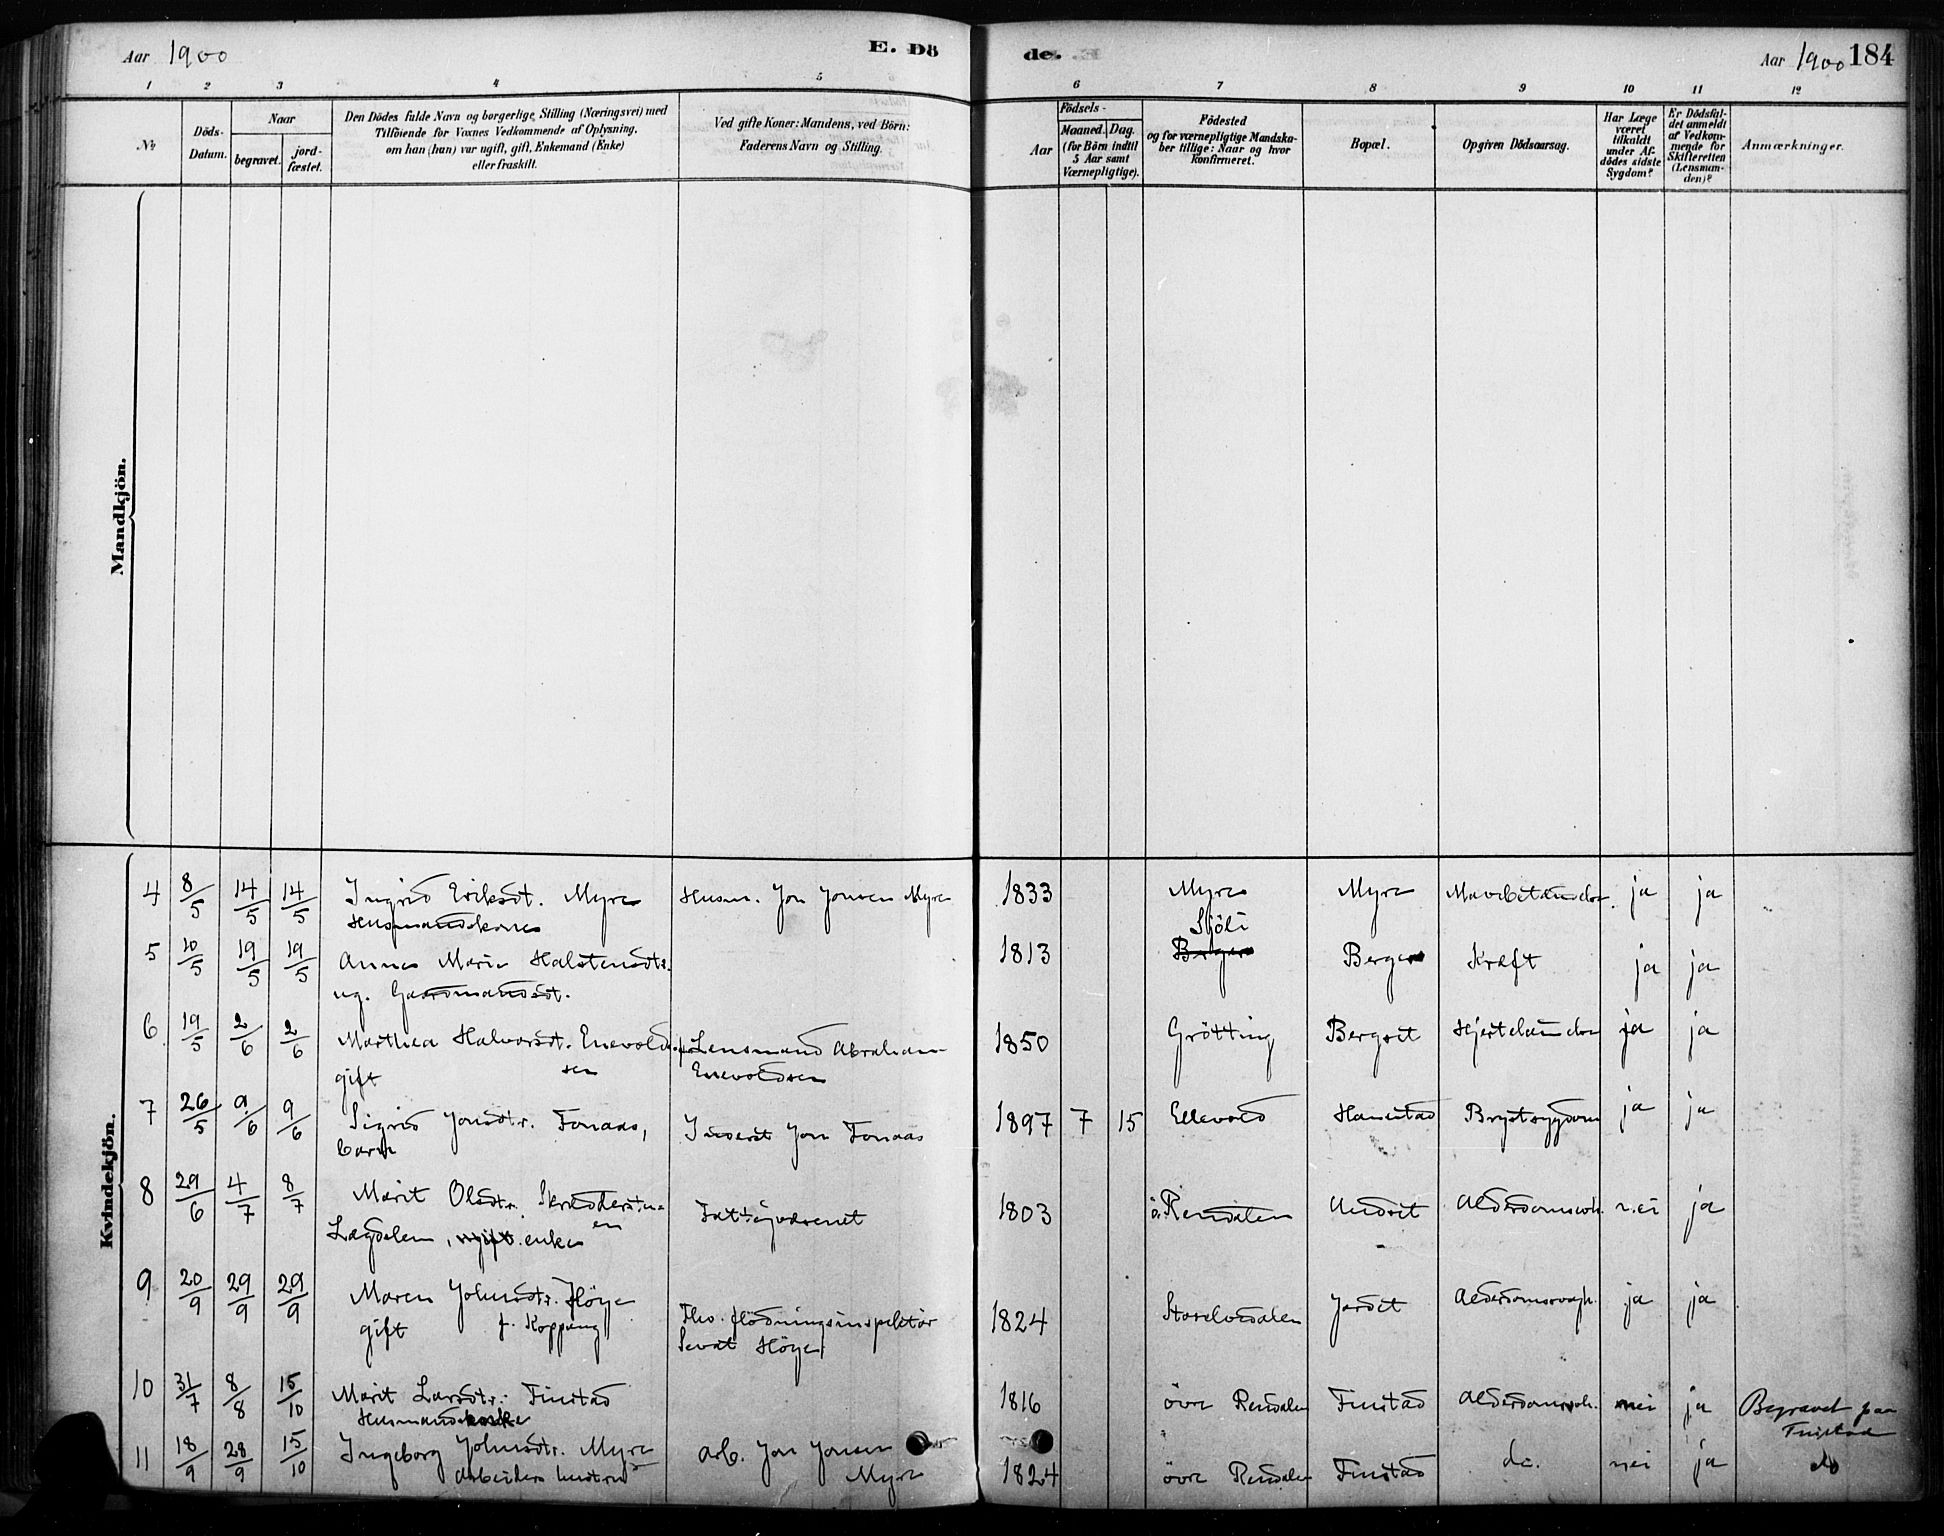 Aar 1900 E. Dö de. Aar 1900 184
1 2 3 4 5 6 7 8 9 10 11 12
No.
Döds-Datum.
Naar
begravet. jord-fæstet.
Den Dödes fulde Navn og borgerlige Stilling (Næringsvei) med
Tilföiende for Voxnes Vedkommende af Oplysning,
om han (hun) var ugift, gift, Enkemand (Enke)
eller fraskilt.
Ved gifte Koner: Mandens, ved Börn:
Faderens Navn og Stilling.
Födsels-
Aar Maaned. Dag.
(for Börn indtil
5 Aar samt
Værnepligtige).
Födested
og for værnepligtige Mandska-
ber tillige: Naar og hvor
Konfirmeret.
Bopæl.
Opgiven Dödsaarsag.
Har Læge
været
tilkaldt
under Af-
dödes sidste
Sygdom?
Er Dödsfal-
det anmeldt
af Vedkom-
mende for
Skifteretten
(Lensman-
den)?
Anmærkninger.
Mandkjön.
Kvindekjön.
4 8/5 14/5 14/5 Ingrid Eriksdt. Myre Husm. Jon Jonsen Myre 1833 Myre Myre ja ja
Husmandskone
5 10/5 19/5 19/5 Anne Marie Halstensdtr. 1813 Sjöli Berger Kræft ja ja
ug. Gaardmandsdt.
6 19/5 2/6 2/6 Marthea Halvorsdt. Enevold- Lensmand Abraham 1850 Grötting Bergset ja ja
gift sen Enevoldsen
7 26/5 9/6 9/6 Sigrid Jonsdtr. Fonaas, Inderst Jon Fonaas 1897 7 15 Ellevold Hanestad Brystsygdom ja ja
barn
8 29/6 4/7 8/7 Marit Olsdtr. Skrædderstu- Fattigvæsenet 1803 ö. Rendalen Undset Alderdomssvh. nei ja
en
Lægdelem, ugift. enke
9 20/9 29/9 29/9 Maren Johnsdtr. Höye 1824 Storelvedalen Jordet ja ja
gift f. Koppang Fhv. flödningsinspektör
Sevat Höye
10 31/7 8/8 15/10 Marit Larsdtr. Finstad 1816 övre Rendalen Finstad Alderdomssvh. nei ja Begravet paa
Finstad
Husmandsenke
11 18/9 28/9 15/10 Ingeborg Johnsdtr. Myre Arb. Jon Jonsen 1824 övre Rendalen Finstad do. nei ja do
Arbeiders hustru Myre